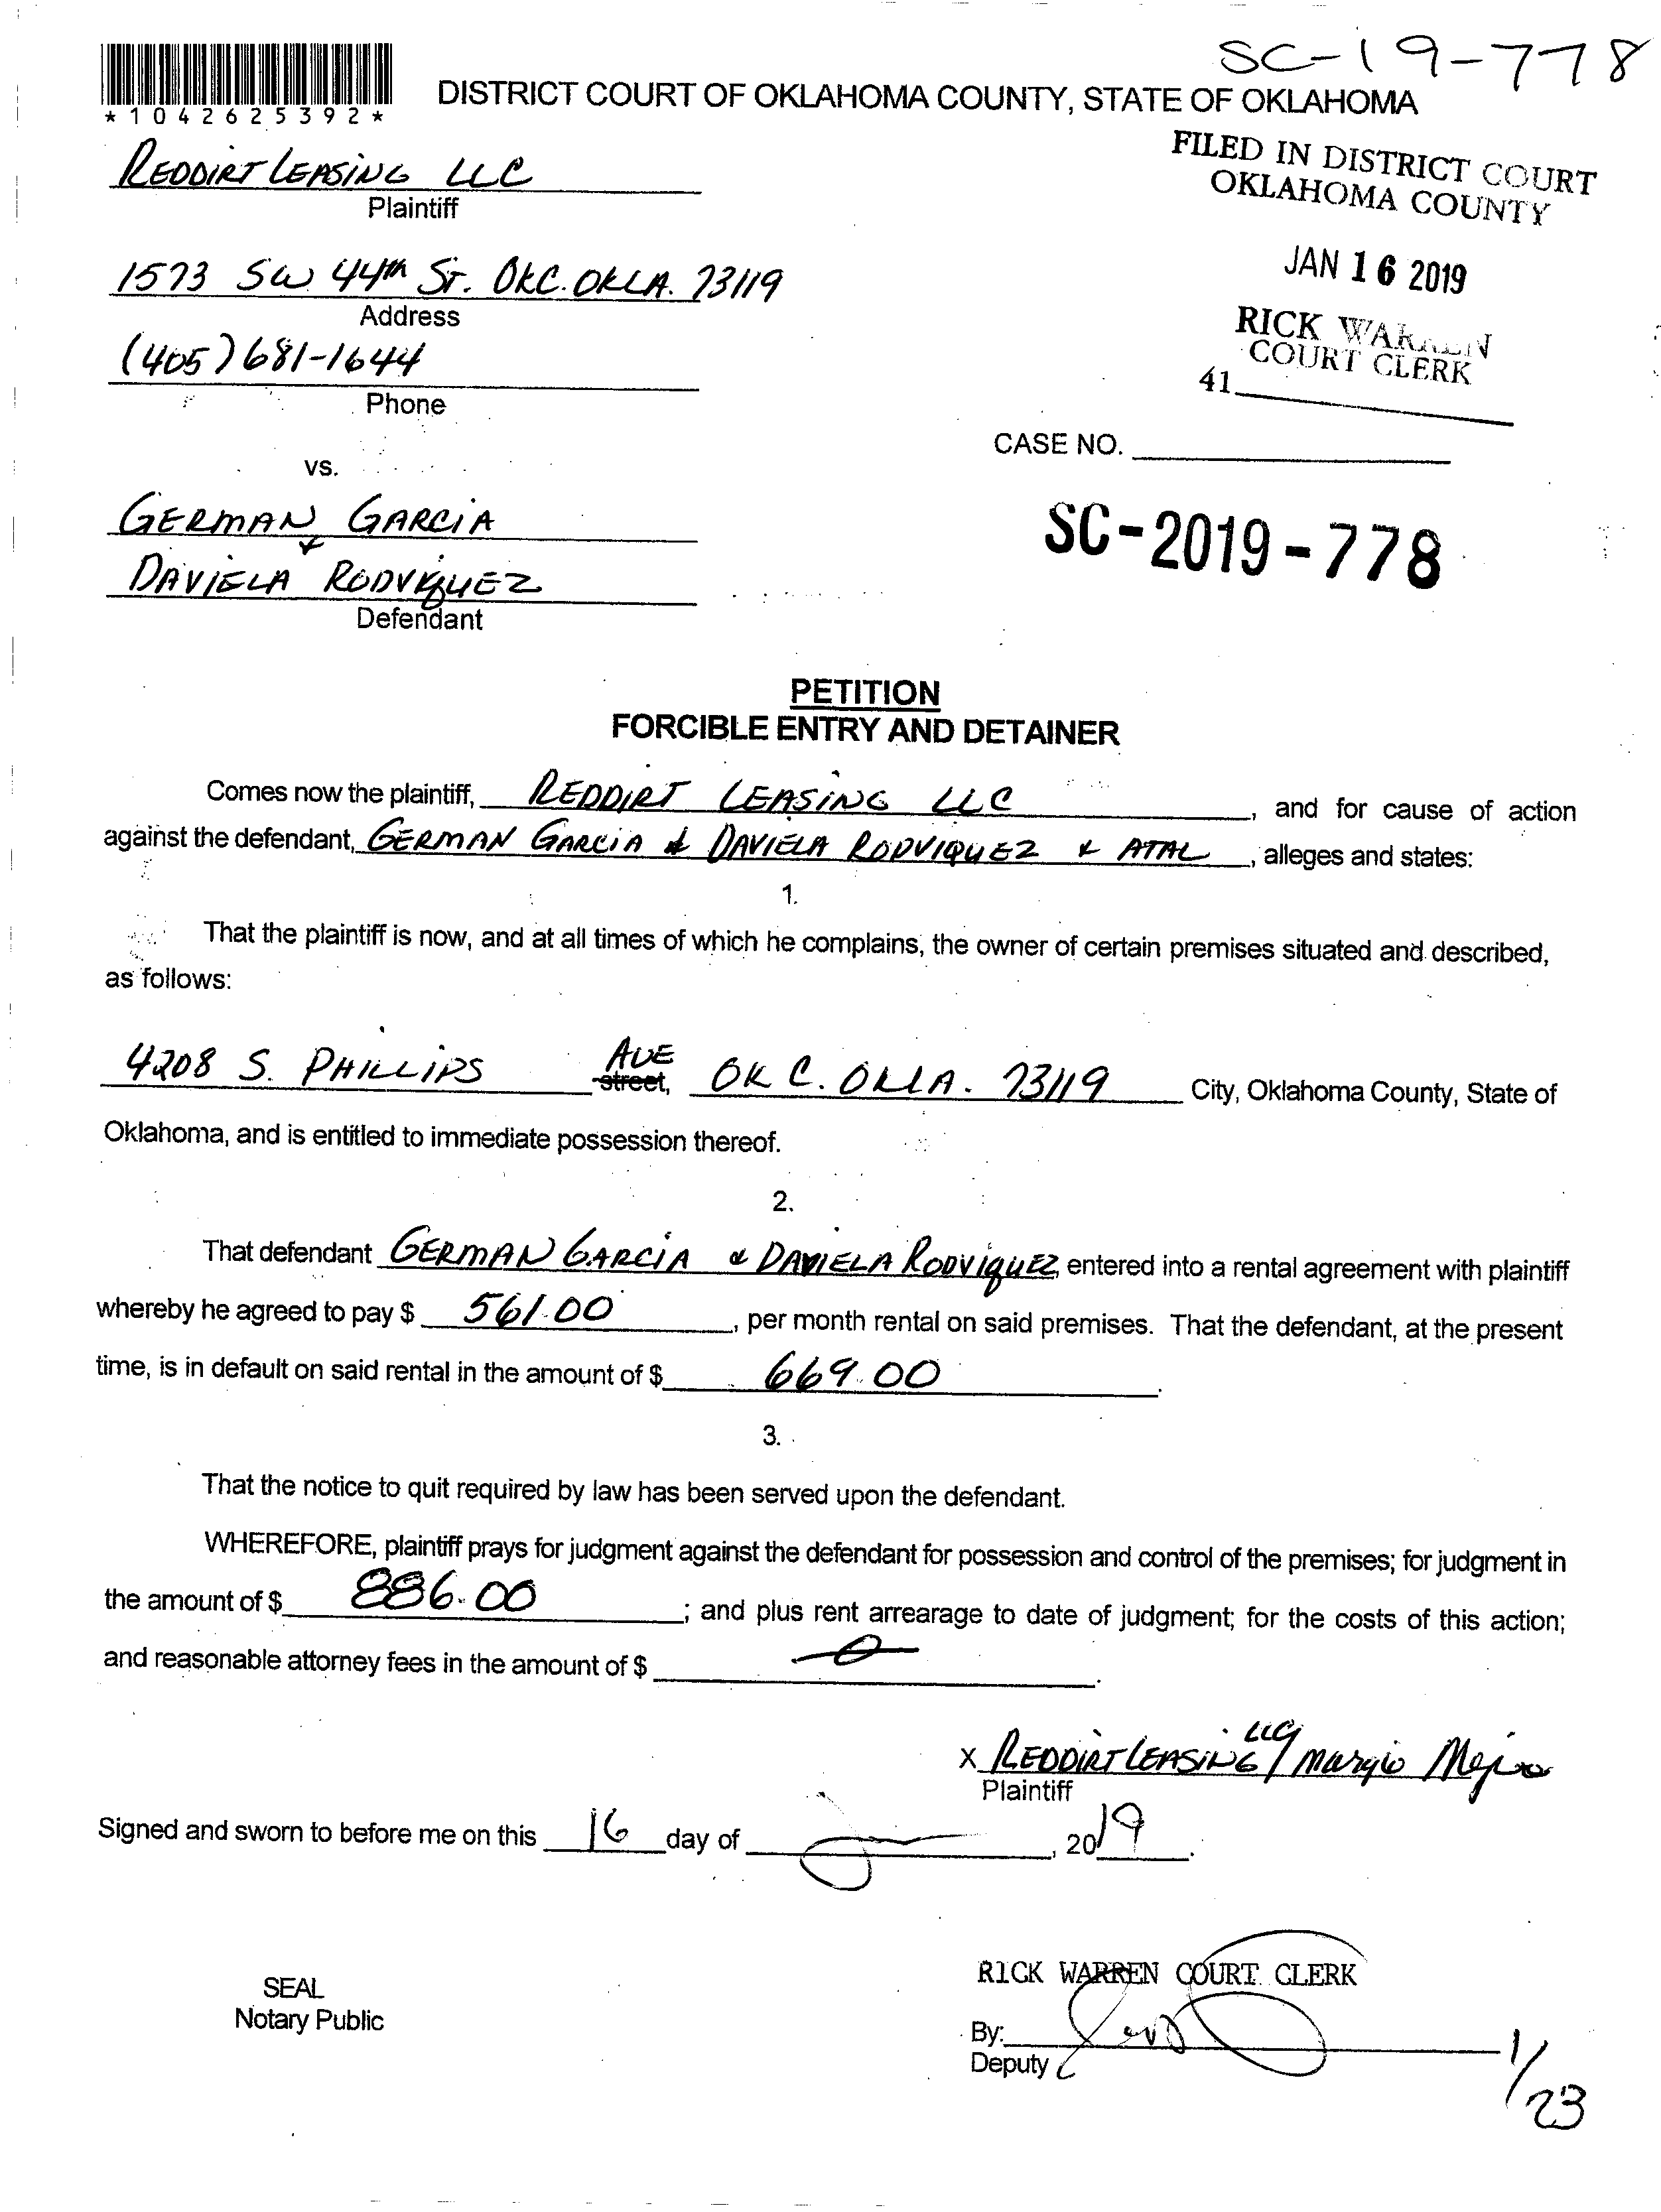 SC-19-778
*1042625392*
DISTRICT COURT OF OKLAHOMA COUNTY, STATE OF OKLAHOMA
REDDIRT LEASING LLC
Plaintiff
FILED IN DISTRICT COURT
OKLAHOMA COUNTY
1573 SW 44th ST. OKC. OKLA. 73119
Address
JAN 16 2019
(405)681-1644
Phone
RICK WARREN
COURT CLERK
41
CASE NO.
vs.
GERMAN GARCIA
&
DAVIELA RODVIQUEZ
Defendant
SC-2019-778
PETITION
FORCIBLE ENTRY AND DETAINER
Comes now the plaintiff, REDDIRT LEASING LLC, and for cause of action
against the defendant, GERMAN GARCIA & DAVIELA RODVIQUEZ & ATAL, alleges and states:
1.
That the plaintiff is now, and at all times of which he complains, the owner of certain premises situated and described,
as follows:
4208 S. PHILLIPS AVE street, OK C. OKLA. 73119 City, Oklahoma County, State of
Oklahoma, and is entitled to immediate possession thereof.
2.
That defendant GERMAN GARCIA & DAVIELA RODVIQUEZ, entered into a rental agreement with plaintiff
whereby he agreed to pay $ 561.00, per month rental on said premises. That the defendant, at the present
time, is in default on said rental in the amount of $ 669.00.
3.
That the notice to quit required by law has been served upon the defendant.
WHEREFORE, plaintiff prays for judgment against the defendant for possession and control of the premises; for judgment in
the amount of $ 886.00; and plus rent arrearage to date of judgment; for the costs of this action;
and reasonable attorney fees in the amount of $ 0.
X REDDIRT LEASING LLC/ Margie
Plaintiff
Signed and sworn to before me on this 16 day of , 2019.
RICK WARREN COURT CLERK
SEAL
Notary Public
By:
Deputy
1/23